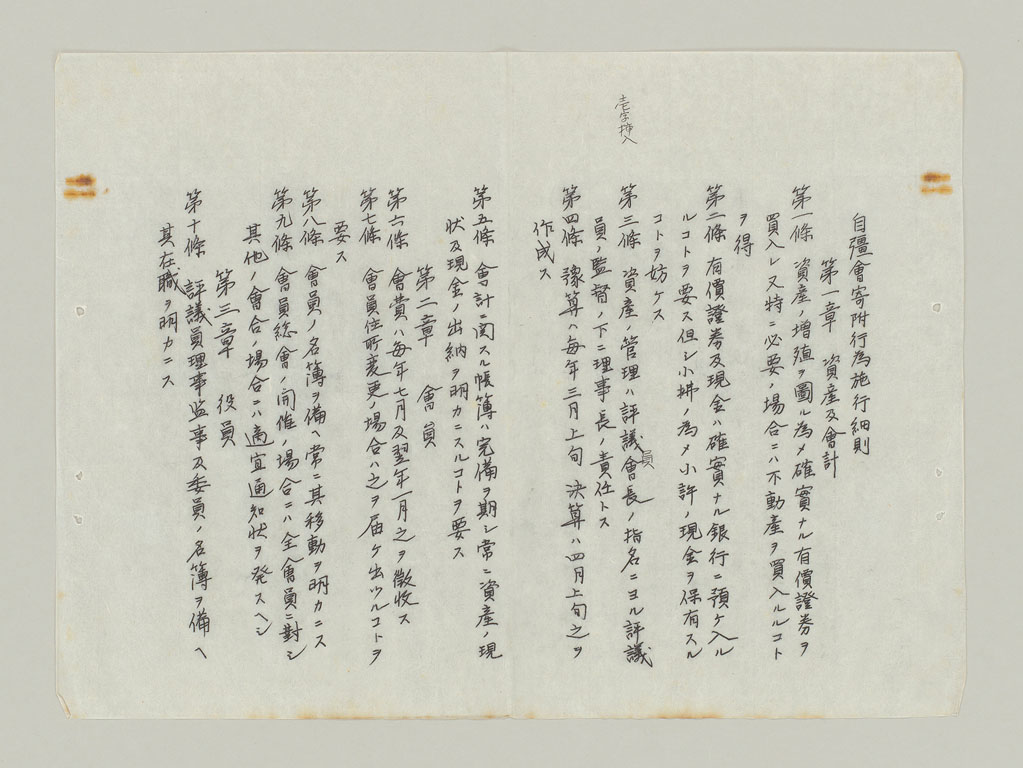 壱字挿入
自彊會寄附行為施行細則
第一章 資産及會計
第一條 資産ノ増殖ヲ圖ル為メ確實ナル有價證券ヲ
買入レ又特ニ必要ノ場合ニハ不動産ヲ買入ルルコト
ヲ得
第二條 有價證券及現金ハ確實ナル銀行ニ預ケ入ル
ルコトヲ要ス但シ小拂ノ為メ小許ノ現金ヲ保有スル
コトヲ妨ケス
第三條 資産ノ管理ハ評議員會長ノ指名ニヨル評議
員ノ監督ノ下ニ理事長ノ責任トス
第四條 豫算ハ毎年三月上旬 決算ハ四月上旬之ヲ
作成ス
第五條 會計ニ関スル帳簿ハ完備ヲ期シ常ニ資産ノ現
状及現金ノ出納ヲ明カニスルコトヲ要ス
第二章 會員
第六條 會費ハ毎年七月及翌年一月之ヲ徴收ス
第七條 會員住所変更ノ場合ハ之ヲ届ケ出ツルコトヲ
要ス
第八條 會員ノ名簿ヲ備ヘ常ニ其移動ヲ明カニス
第九條 會員総會ノ開催ノ場合ニハ全會員ニ對シ
其他ノ會合ノ場合ニハ適宜通知状ヲ発スヘシ
第三章 役員
第十條 評議員理事监事及委員ノ名簿ヲ備ヘ
其在職ヲ明カニス